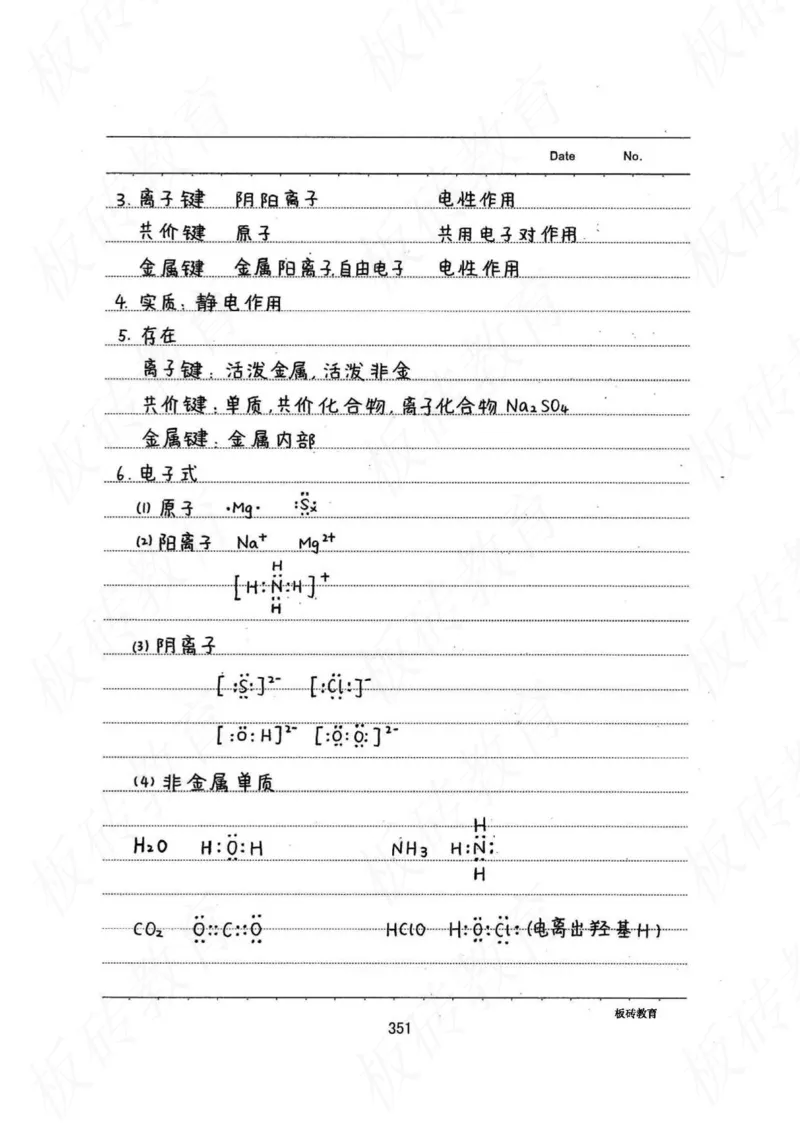 Date No.
3. 离子键 阴阳离子 电性作用
共价键 原子 共用电子对作用
金属键 金属阳离子,自由电子 电性作用
4. 实质: 静电作用
5. 存在
离子键: 活泼金属, 活泼非金
共价键: 单质, 共价化合物, 离子化合物 Na₂SO₄
金属键: 金属内部
6. 电子式
(1) 原子 ·Mg· :S:
(2) 阳离子 Na⁺ Mg²⁺
H
[H:N:H]⁺
H
(3) 阴离子
[:S:]²⁻ [:Cl:]⁻
[:O:H]²⁻ [:O:O:]²⁻
(4) 非金属单质
H
H₂O H:O:H NH₃ H:N:
H
CO₂ O::C::O HClO H:O:Cl: (电离出羟基H)
板砖教育
351